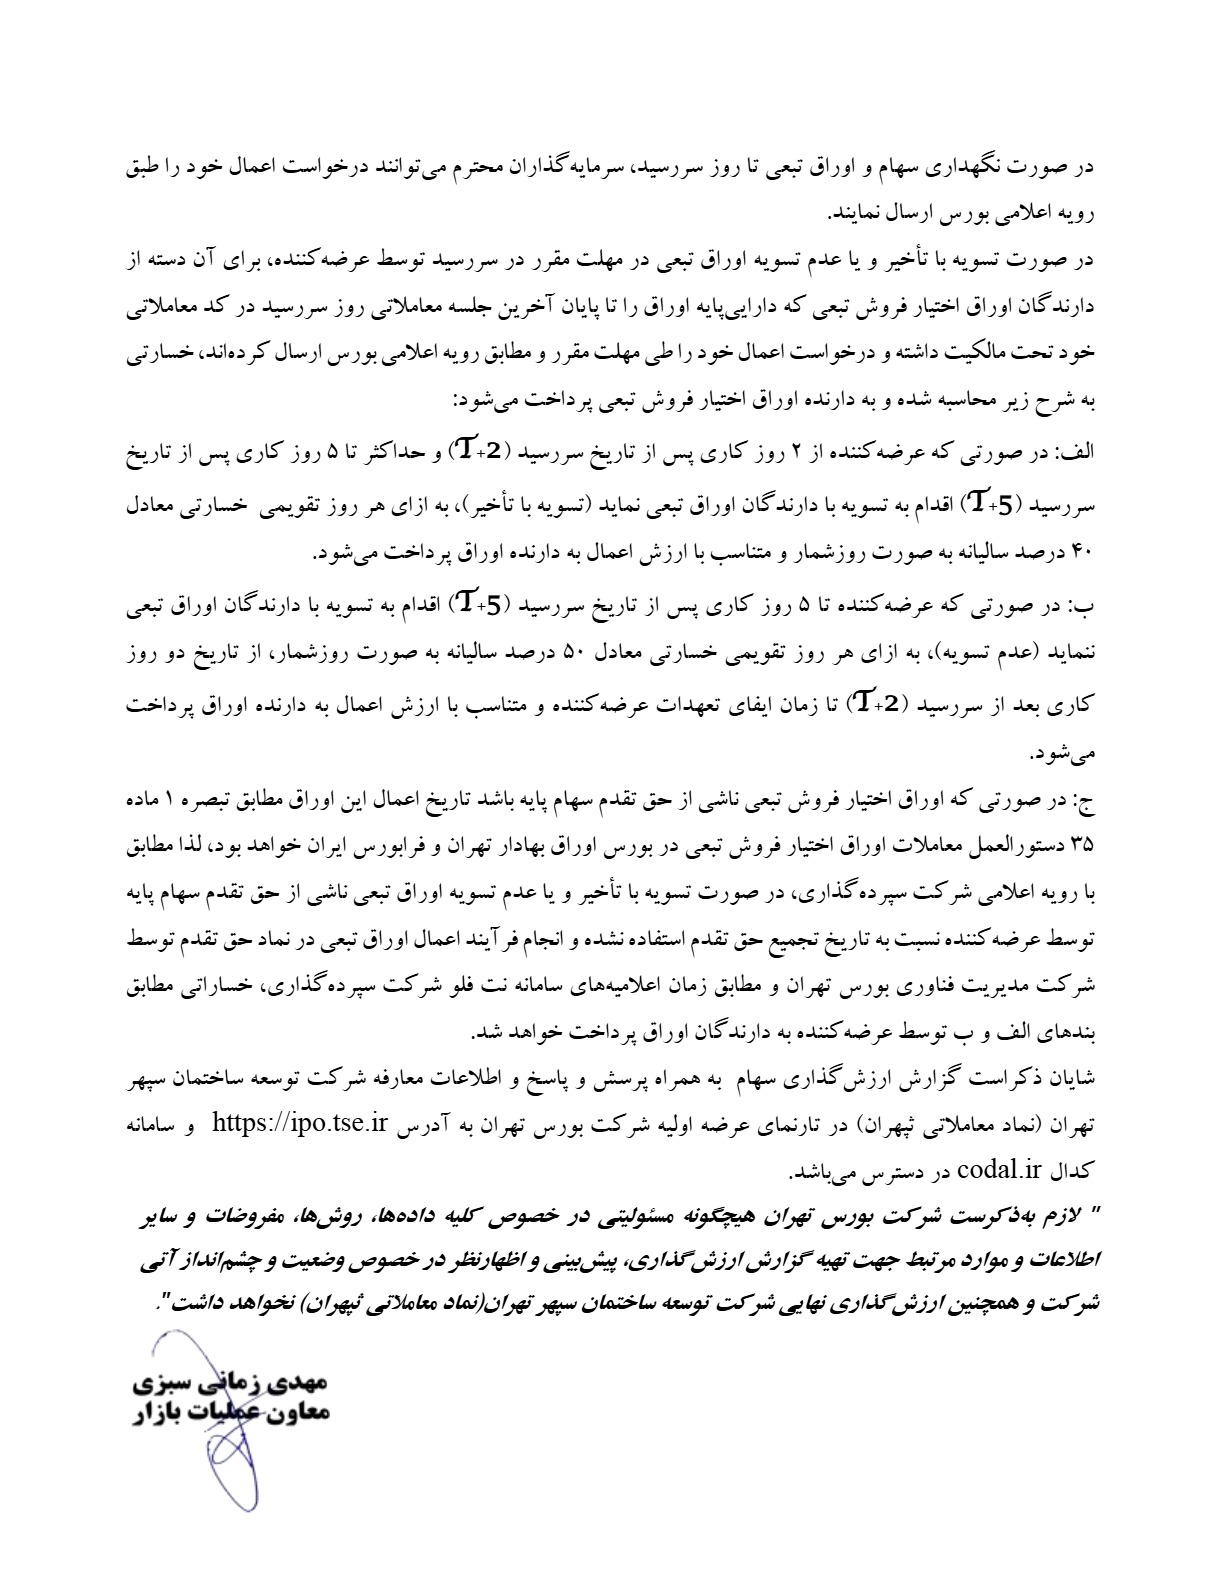 در صورت نگهداری سهام و اوراق تبعی تا روز سررسید، سرمایه‌گذاران محترم می‌توانند درخواست اعمال خود را طبق
رویه اعلامی بورس ارسال نمایند.
در صورت تسویه با تأخیر و یا عدم تسویه اوراق تبعی در مهلت مقرر در سررسید توسط عرضه‌کننده، برای آن دسته از
دارندگان اوراق اختیار فروش تبعی که دارایی‌پایه اوراق را تا پایان آخرین جلسه معاملاتی روز سررسید در کد معاملاتی
خود تحت مالکیت داشته و درخواست اعمال خود را طی مهلت مقرر و مطابق رویه اعلامی بورس ارسال کرده‌اند، خسارتی
به شرح زیر محاسبه شده و به دارنده اوراق اختیار فروش تبعی پرداخت می‌شود:
الف: در صورتی که عرضه‌کننده از ۲ روز کاری پس از تاریخ سررسید (T+2) و حداکثر تا ۵ روز کاری پس از تاریخ
سررسید (T+5) اقدام به تسویه با دارندگان اوراق تبعی نماید (تسویه با تأخیر)، به ازای هر روز تقویمی خسارتی معادل
۴۰ درصد سالیانه به صورت روزشمار و متناسب با ارزش اعمال به دارنده اوراق پرداخت می‌شود.
ب: در صورتی که عرضه‌کننده تا ۵ روز کاری پس از تاریخ سررسید (T+5) اقدام به تسویه با دارندگان اوراق تبعی
ننماید (عدم تسویه)، به ازای هر روز تقویمی خسارتی معادل ۵۰ درصد سالیانه به صورت روزشمار، از تاریخ دو روز
کاری بعد از سررسید (T+2) تا زمان ایفای تعهدات عرضه‌کننده و متناسب با ارزش اعمال به دارنده اوراق پرداخت
می‌شود.
ج: در صورتی که اوراق اختیار فروش تبعی ناشی از حق تقدم سهام پایه باشد تاریخ اعمال این اوراق مطابق تبصره ۱ ماده
۳۵ دستورالعمل معاملات اوراق اختیار فروش تبعی در بورس اوراق بهادار تهران و فرابورس ایران خواهد بود، لذا مطابق
با رویه اعلامی شرکت سپرده‌گذاری، در صورت تسویه با تأخیر و یا عدم تسویه اوراق تبعی ناشی از حق تقدم سهام پایه
توسط عرضه‌کننده نسبت به تاریخ تجمیع حق تقدم استفاده نشده و انجام فرآیند اعمال اوراق تبعی در نماد حق تقدم توسط
شرکت مدیریت فناوری بورس تهران و مطابق زمان اعلامیه‌های سامانه نت فلو شرکت سپرده‌گذاری، خساراتی مطابق
بندهای الف و ب توسط عرضه‌کننده به دارندگان اوراق پرداخت خواهد شد.
شایان ذکراست گزارش ارزش‌گذاری سهام به همراه پرسش و پاسخ و اطلاعات معارفه شرکت توسعه ساختمان سپهر
تهران (نماد معاملاتی ثپهران) در تارنمای عرضه اولیه شرکت بورس تهران به آدرس https://ipo.tse.ir و سامانه
کدال codal.ir در دسترس می‌باشد.
" لازم به‌ذکرست شرکت بورس تهران هیچگونه مسئولیتی در خصوص کلیه داده‌ها، روش‌ها، مفروضات و سایر
اطلاعات و موارد مرتبط جهت تهیه گزارش ارزش‌گذاری، پیش‌بینی و اظهارنظر در خصوص وضعیت و چشم‌انداز آتی
شرکت و همچنین ارزش‌گذاری نهایی شرکت توسعه ساختمان سپهر تهران(نماد معاملاتی ثپهران) نخواهد داشت".
مهدی زمانی سبزی
معاون عملیات بازار